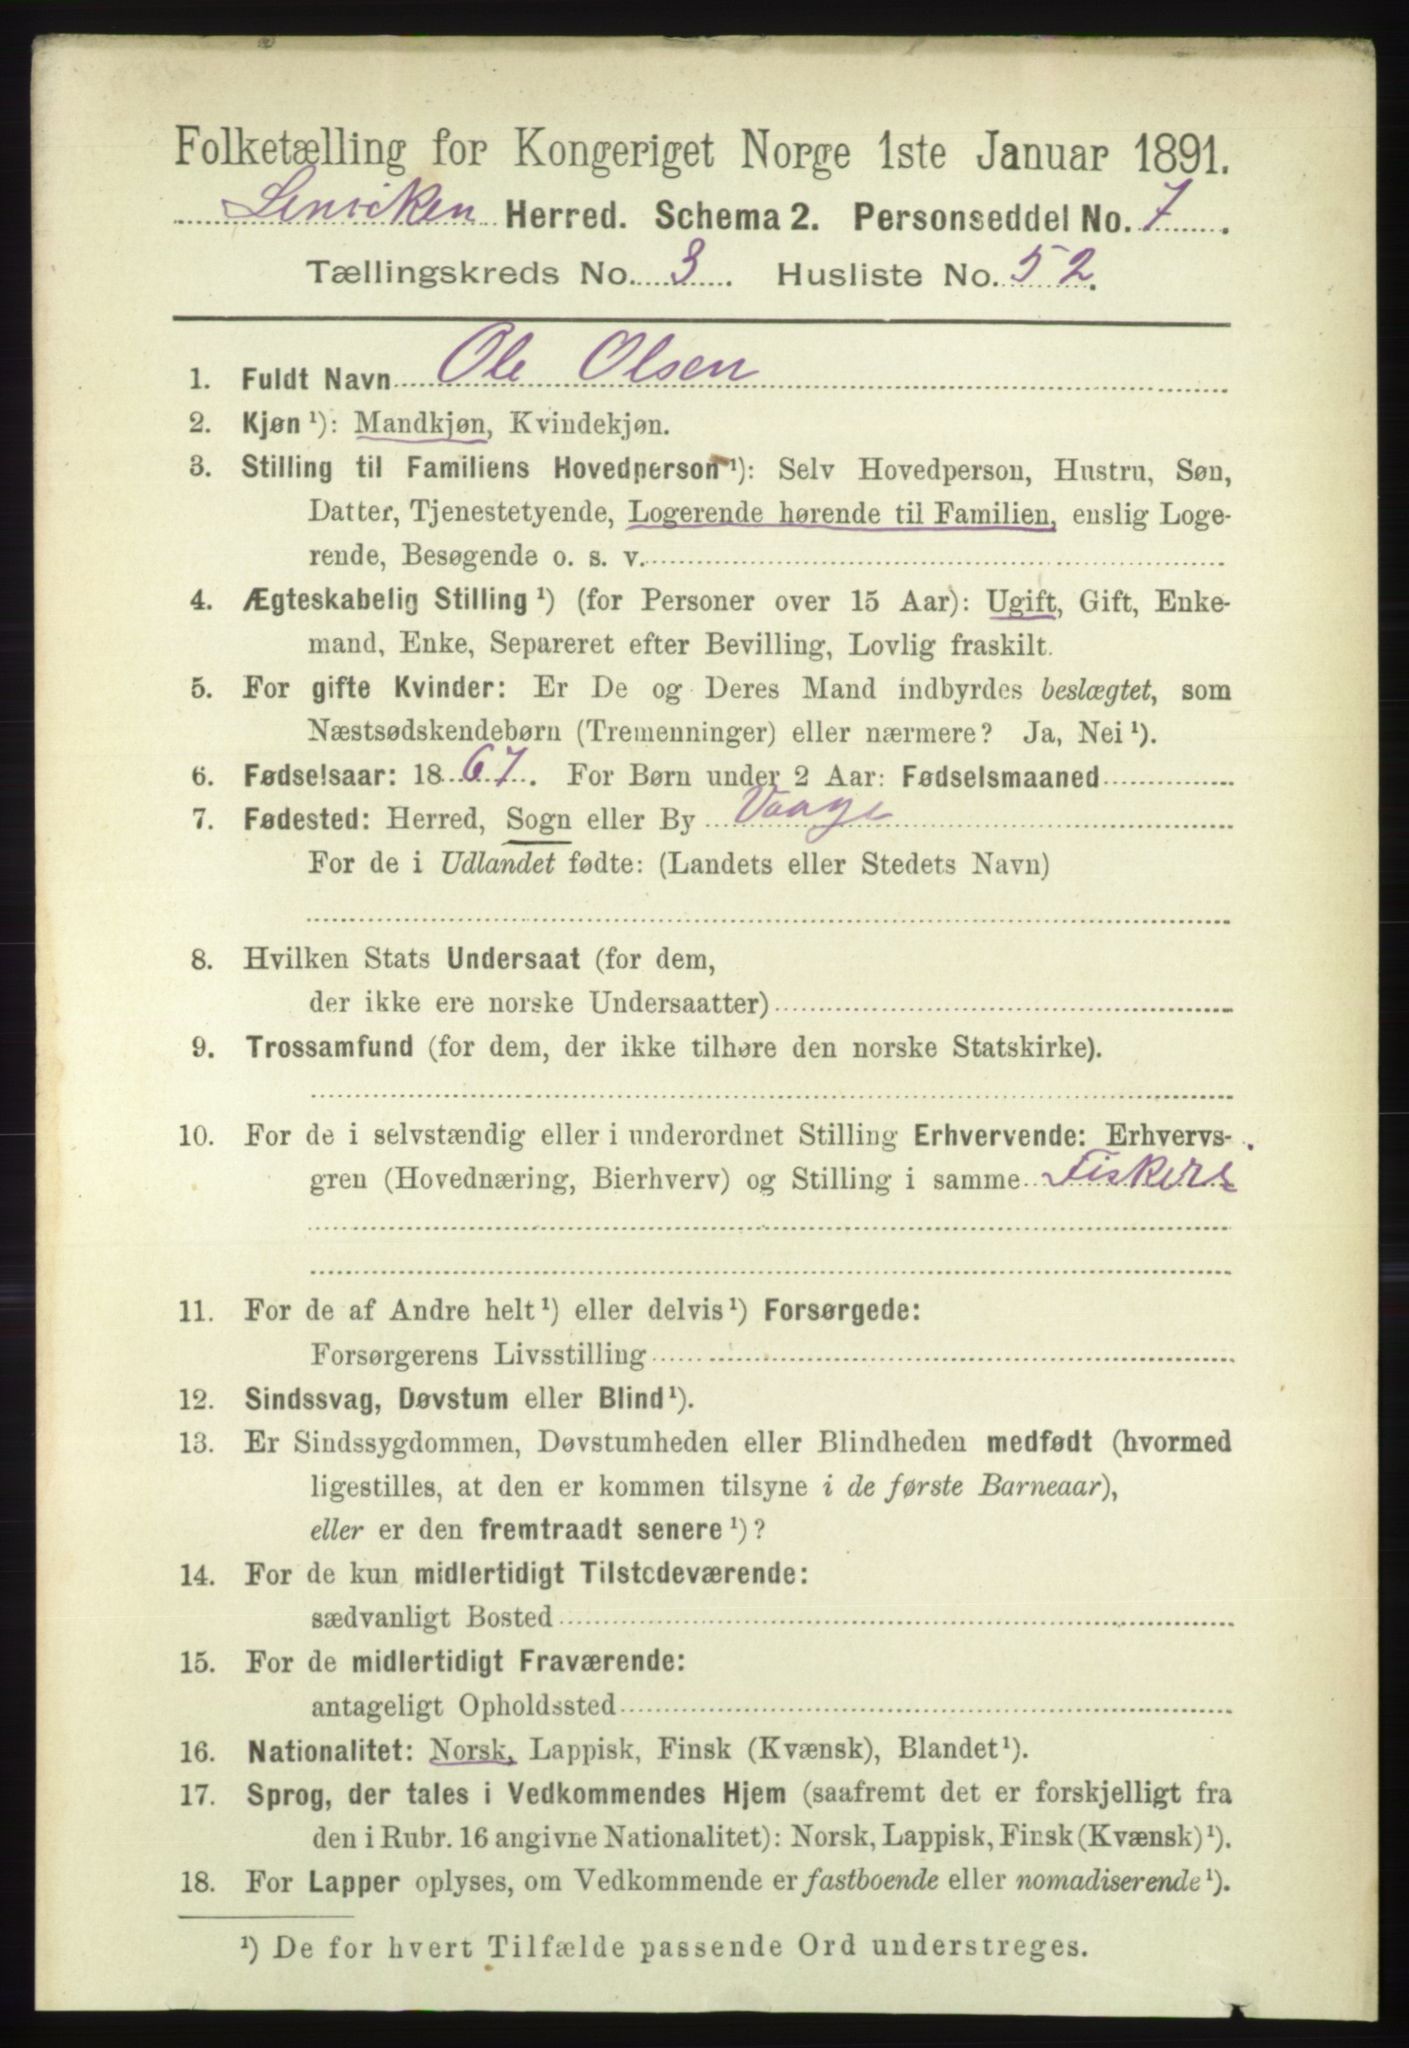 Folketælling for Kongeriget Norge 1ste Januar 1891.
Lenviken Herred. Schema 2. Personseddel No. 7.
Tællingskreds No. 3. Husliste No. 52.
1. Fuldt Navn Ole Olsen
2. Kjøn ¹): Mandkjøn, Kvindekjøn.
3. Stilling til Familiens Hovedperson ¹): Selv Hovedperson, Hustru, Søn,
Datter, Tjenestetyende, Logerende hørende til Familien, enslig Loge-
rende, Besøgende o. s. v.
4. Ægteskabelig Stilling ¹) (for Personer over 15 Aar): Ugift, Gift, Enke-
mand, Enke, Separeret efter Bevilling, Lovlig fraskilt.
5. For gifte Kvinder: Er De og Deres Mand indbyrdes beslægtet, som
Næstsødskendebørn (Tremenninger) eller nærmere? Ja, Nei ¹).
6. Fødselsaar: 1867. For Børn under 2 Aar: Fødselsmaaned
7. Fødested: Herred, Sogn eller By Vaage
For de i Udlandet fødte: (Landets eller Stedets Navn)
8. Hvilken Stats Undersaat (for dem,
der ikke ere norske Undersaatter)
9. Trossamfund (for dem, der ikke tilhøre den norske Statskirke).
10. For de i selvstændig eller i underordnet Stilling Erhvervende: Erhvervs-
gren (Hovednæring, Bierhverv) og Stilling i samme Fisker
11. For de af Andre helt ¹) eller delvis ¹) Forsørgede:
Forsørgerens Livsstilling
12. Sindssvag, Døvstum eller Blind ¹).
13. Er Sindssygdommen, Døvstumheden eller Blindheden medfødt (hvormed
ligestilles, at den er kommen tilsyne i de første Barneaar),
eller er den fremtraadt senere ¹)?
14. For de kun midlertidigt Tilstedeværende:
sædvanligt Bosted
15. For de midlertidigt Fraværende:
antageligt Opholdssted
16. Nationalitet: Norsk, Lappisk, Finsk (Kvænsk), Blandet ¹).
17. Sprog, der tales i Vedkommendes Hjem (saafremt det er forskjelligt fra
den i Rubr. 16 angivne Nationalitet): Norsk, Lappisk, Finsk (Kvænsk) ¹).
18. For Lapper oplyses, om Vedkommende er fastboende eller nomadiserende ¹).
¹) De for hvert Tilfælde passende Ord understreges.